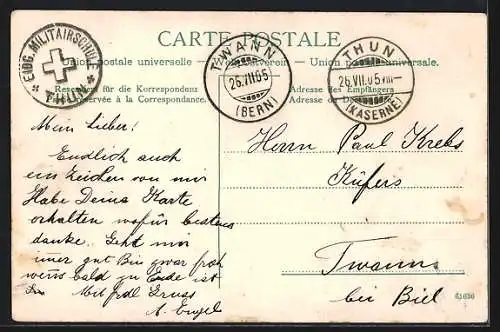 CARTE POSTALE
Union postale universelle — Weltpostverein — Union postale universale.
Reservirt für die Korrespondenz
Partie réservée à la Correspondance.
Adresse des Empfängers
Adresse du
EIDG. MILITAIRSCHULE
THUN
TWANN
26.VII.05
(BERN)
THUN
26.VII.05 VIII—
(KASERNE)
Mein Lieber!
Endlich auch
ein Zeichen von mir
Habe Deine Karte
erhalten wofür bestens
danke. Geht mir
immer gut Bin zwar froh
wenns bald zu Ende ist
Mit frdl Gruss
A. Engel
Herrn Paul Krebs
Küfers
Twann
bei Biel